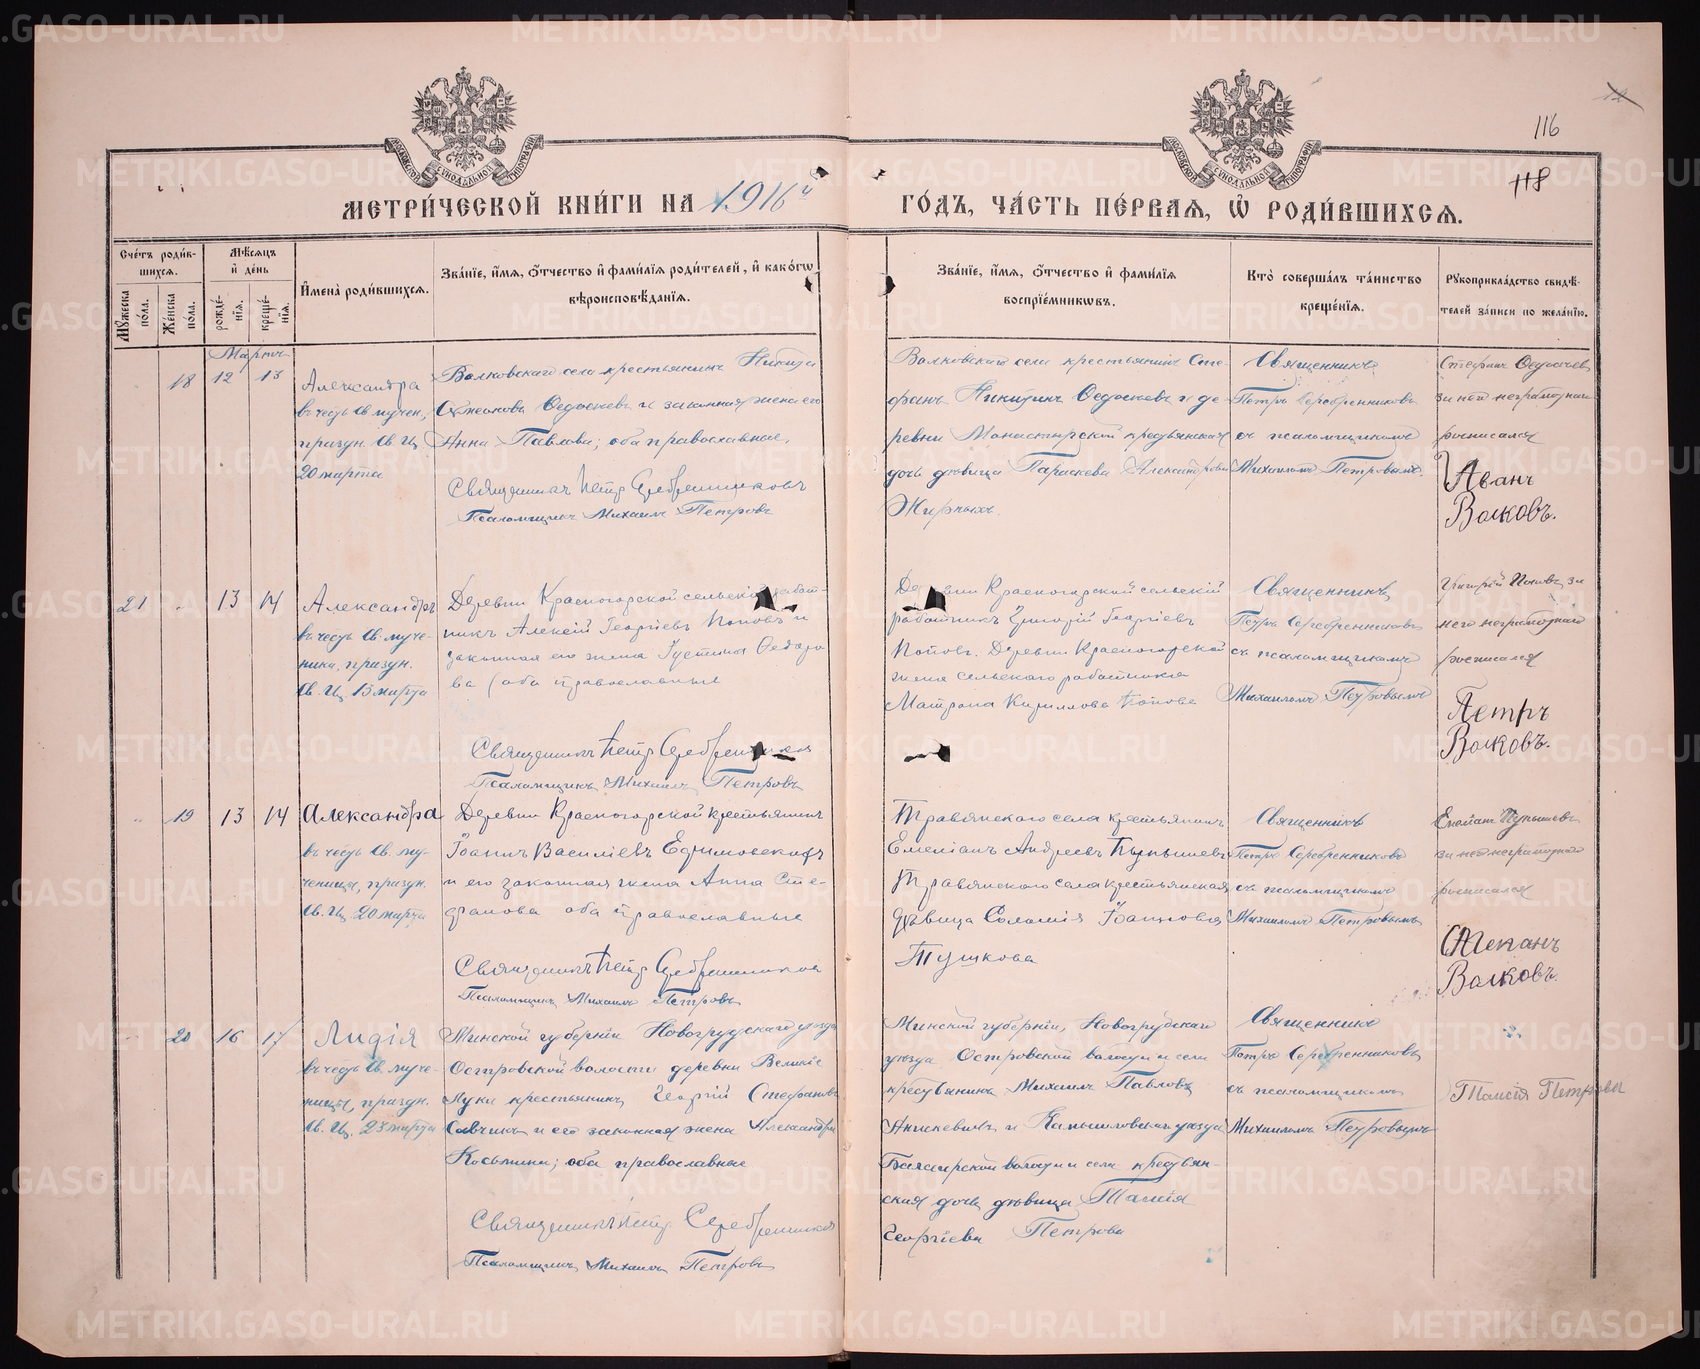 116
118
МЕТРИ́ЧЕСКОЙ КНИ́ГИ НА 1916й ГО́ДЪ, ЧА́СТЬ ПЕ́РВАЯ, Ѡ҆ РОДИ́ВШИХСЯ.
Сче́тъ роди́в-
шихся.
Мꙋ́жеска по́ла.
Же́нска по́ла.
Мѣ́сяцъ
и҆ де́нь
рожде́-
нїя.
креще́-
нїя.
И҆мена̀ роди́вшихся.
Зва́нїе, и҆́мя, ѻ҆́тчество и҆ фами́лїя роди́телей, и҆ како́гѡ
вѣроисповѣ́данїя.
Зва́нїе, и҆́мя, ѻ҆́тчество и҆ фами́лїя
воспрїе́мникѡвъ.
Кто̀ соверша́лъ та́инство
креще́нїя.
Рꙋкоприкла́дство свидѣ́-
телей за́писи по жела́нїю.
Мартъ
18 12 13
Александра
въ честь Св. мучен.,
праздн. Св. Ц.
20 марта
Волковскаго села крестьянинъ Никита
Ѳедосѣевъ и законная жена его
Анна Павлова; оба православные.
Священникъ Петръ Серебренниковъ
Псаломщикъ Михаилъ Петровъ
Волковскаго села крестьянинъ Сте-
фанъ Никитинъ Ѳедосѣевъ и де-
ревни Монастырской крестьянская
дочь дѣвица Параскева Александрова
Жирныхъ.
Священникъ
Петръ Серебренниковъ
съ псаломщикомъ
Михаиломъ Петровымъ.
Стефанъ Ѳедосѣевъ
за неграмотнаго
росписался
Иванъ
Волковъ.
21 13 14
Александръ
въ честь Св. муче-
ника, праздн.
Св. Ц. 15 марта
Деревни Красногорской сельскій работ-
никъ Алексій Георгіевъ Поповъ и
законная его жена Іустина Ѳедоро-
ва (оба православные
Священникъ Петръ Серебренниковъ
Псаломщикъ Михаилъ Петровъ
Деревни Красногорской сельскій
работникъ Григорій Георгіевъ
Поповъ. Деревни Красногорской
жена сельскаго работника
Матрона Кириллова Попова
Священникъ
Петръ Серебренниковъ
съ псаломщикомъ
Михаиломъ Петровымъ
Григорій Поповъ, за
него неграмотнаго
росписался
Петръ
Волковъ.
19 13 14
Александра
въ честь Св. му-
ченицы, праздн.
Св. Ц. 20 марта
Деревни Красногорской крестьянинъ
Іоаннъ Василіевъ
и его законная жена Анна Сте-
фанова оба православные
Священникъ Петръ Серебренниковъ
Псаломщикъ Михаилъ Петровъ
Травянскаго села крестьянинъ
Емеліанъ Андреевъ
Травянскаго села крестьянская
дѣвица Соломія Іоаннова
Тушкова
Священникъ
Петръ Серебренниковъ
съ псаломщикомъ
Михаиломъ Петровымъ
росписался
Степанъ
Волковъ.
20 16 17
Лидія
въ честь Св. муче-
ницы, праздн.
Св. Ц. 23 марта
Минской губерніи Новогрудскаго уѣзда
Островской волости деревни Великіе
Луки крестьянинъ Георгій Стефановъ
Савчикъ и его законная жена Александра
Косьмина; оба православные
Священникъ Петръ Серебренниковъ
Псаломщикъ Михаилъ Петровъ
Минской губерніи, Новогрудскаго
уѣзда Островской волости и села
крестьянинъ Михаилъ Павловъ
и Камышловскаго уѣзда
волости и села крестьян-
ская дочь дѣвица Таисія
Георгіева Петрова
Священникъ
Петръ Серебренниковъ
съ псаломщикомъ
Михаиломъ Петровымъ
Таисія Петрова
METRIKI.GASO-URAL.RU